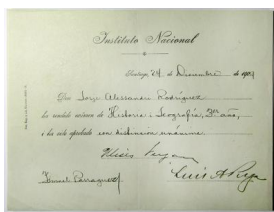 Instituto Nacional
Santiago, 24 de Diciembre de 190
Don Jorje Alessandri Rodríguez
ha rendido exámen de Historia i Jeografía, 3er año,
i ha sido aprobado con distincion unánime.
Luis A.